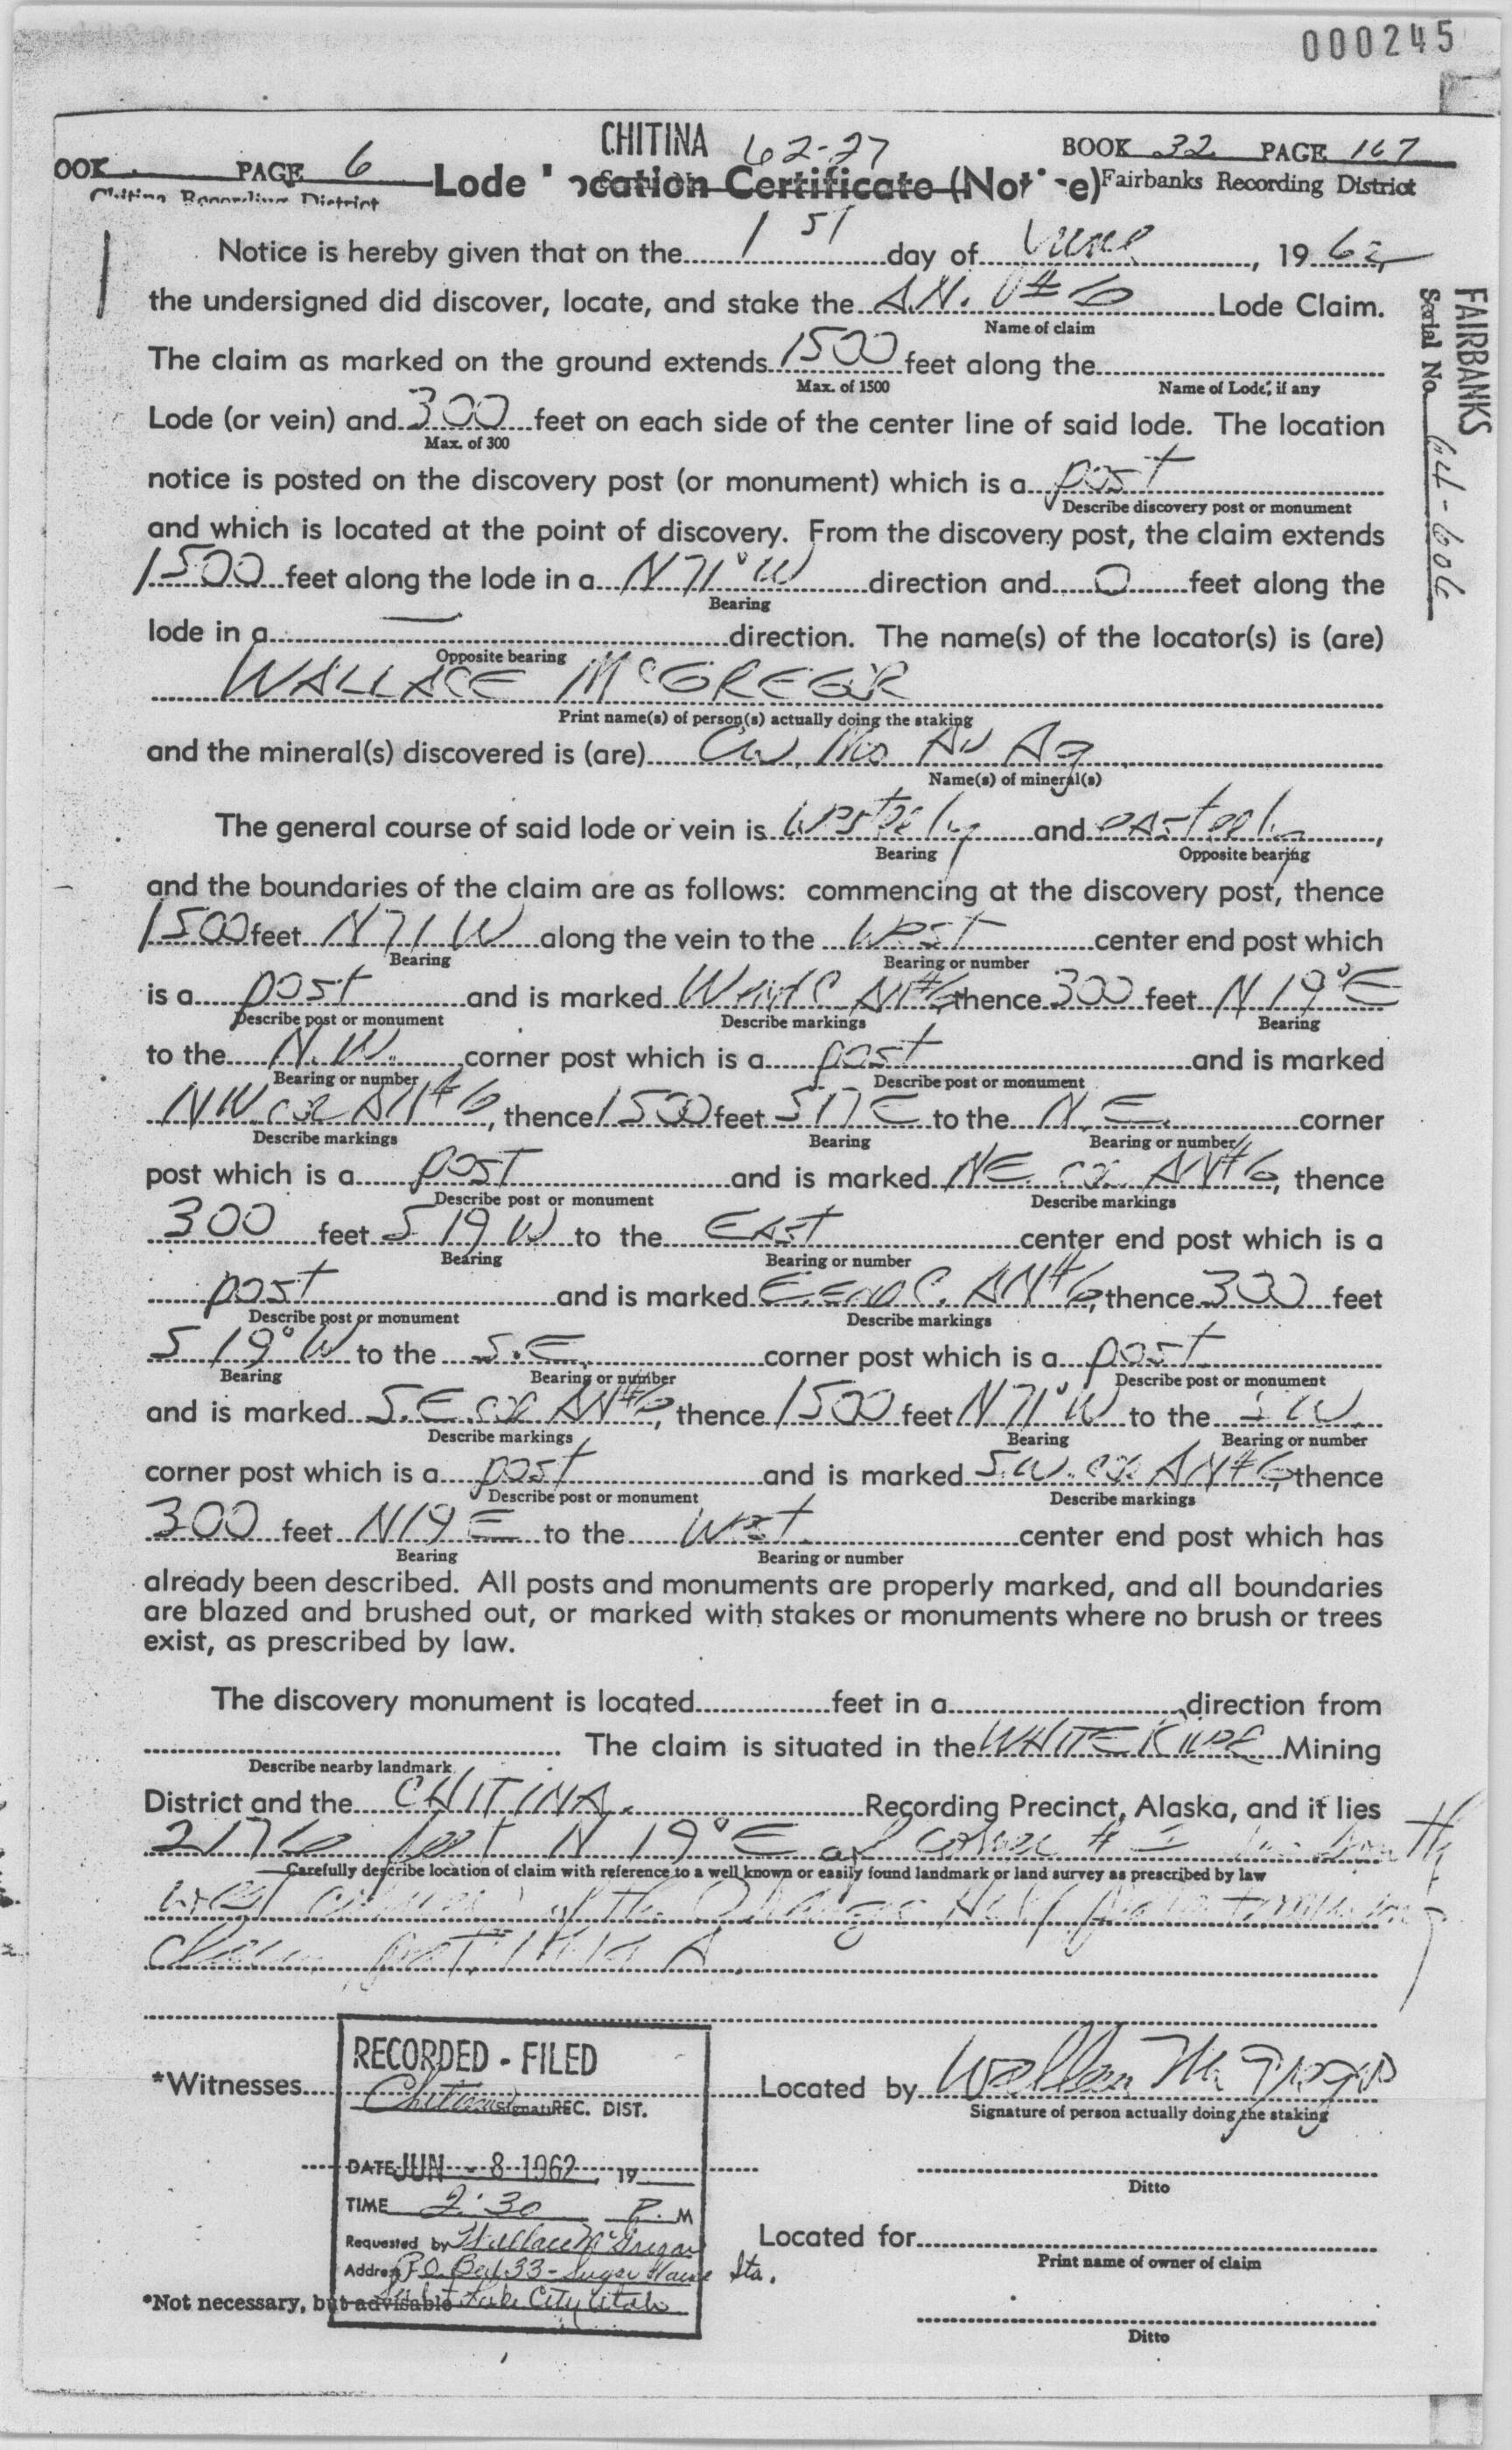 000245
CHITINA 62-27 BOOK 32 PAGE 167
OOK PAGE 6 Lode ocation Certificate (Not e) Fairbanks Recording District
Chitina Recording District
Notice is hereby given that on the 1 st day of June, 1962
the undersigned did discover, locate, and stake the A.N. # 6 Lode Claim.
Name of claim
The claim as marked on the ground extends 1500 feet along the
Max. of 1500 Name of Lode, if any
Lode (or vein) and 300 feet on each side of the center line of said lode. The location
Max. of 300
notice is posted on the discovery post (or monument) which is a post
Describe discovery post or monument
and which is located at the point of discovery. From the discovery post, the claim extends
1500 feet along the lode in a N 71° W direction and 0 feet along the
Bearing
lode in a — direction. The name(s) of the locator(s) is (are)
Opposite bearing
WALLACE McGREGOR
Print name(s) of person(s) actually doing the staking
and the mineral(s) discovered is (are) Cu, Mo Au Ag
Name(s) of mineral(s)
The general course of said lode or vein is westerly and easterly,
Bearing Opposite bearing
and the boundaries of the claim are as follows: commencing at the discovery post, thence
1500 feet N 71 W along the vein to the West center end post which
Bearing Bearing or number
is a post and is marked W end C AN#6 thence 300 feet N 19° E
Describe post or monument Describe markings Bearing
to the N.W. corner post which is a post and is marked
Bearing or number Describe post or monument
NW cor AN#6, thence 1500 feet S 71 E to the N.E. corner
Describe markings Bearing Bearing or number
post which is a post and is marked NE cor AN#6, thence
Describe post or monument Describe markings
300 feet S 19 W to the East center end post which is a
Bearing Bearing or number
post and is marked E. End C. AN#6, thence 300 feet
Describe post or monument Describe markings
S 19° W to the S.E. corner post which is a post
Bearing Bearing or number Describe post or monument
and is marked S.E. cor AN#6, thence 1500 feet N 71° W to the S W.
Describe markings Bearing Bearing or number
corner post which is a post and is marked S.W. cor AN#6, thence
Describe post or monument Describe markings
300 feet N 19 E to the West center end post which has
Bearing Bearing or number
already been described. All posts and monuments are properly marked, and all boundaries
are blazed and brushed out, or marked with stakes or monuments where no brush or trees
exist, as prescribed by law.
The discovery monument is located feet in a direction from
The claim is situated in the WHITE RIVER Mining
Describe nearby landmark
District and the CHITINA Recording Precinct, Alaska, and it lies
2176 feet N 19° E of corner # south
Carefully describe location of claim with reference to a well known or easily found landmark or land survey as prescribed by law
west corner of the Orange Hill
claim
RECORDED - FILED
*Witnesses Located by Wallace McGregor
Chitina REC. DIST. Signature of person actually doing the staking
DATE JUN - 8 1962 19
Ditto
TIME 2:30 P. M
Requested by Wallace McGregor Located for
Print name of owner of claim
Address P.O. Box 33 - Sugar House Sta.
*Not necessary, but advisable Salt Lake City Utah
Ditto
FAIRBANKS
Serial No. 64-606